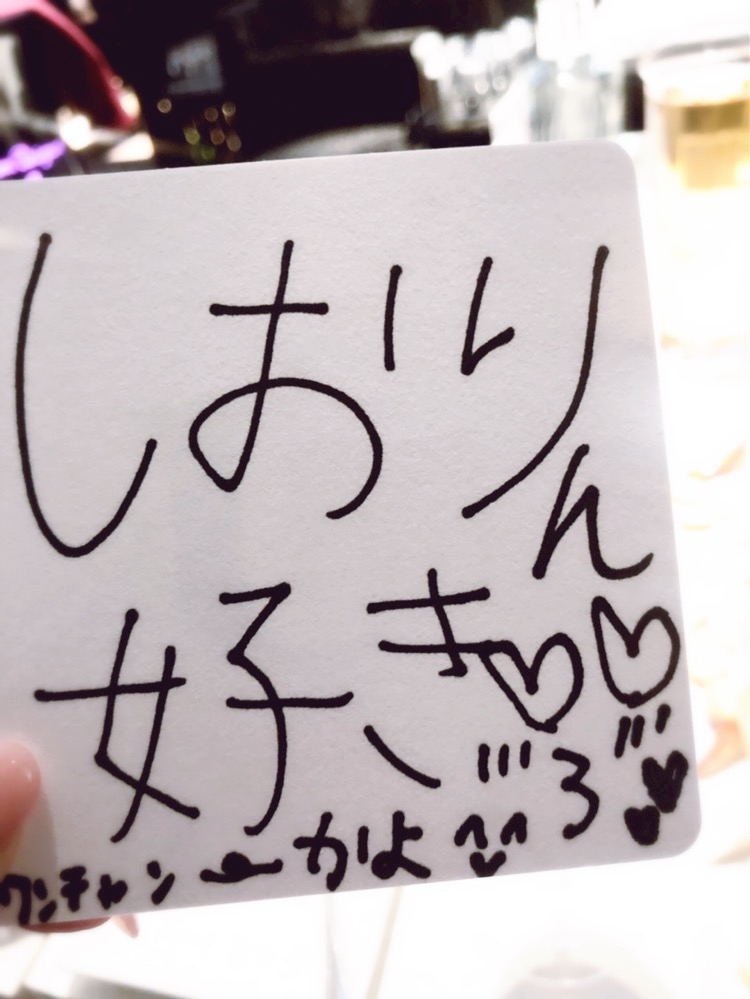 しおりん
好き♡♡
ワンチャン かよ